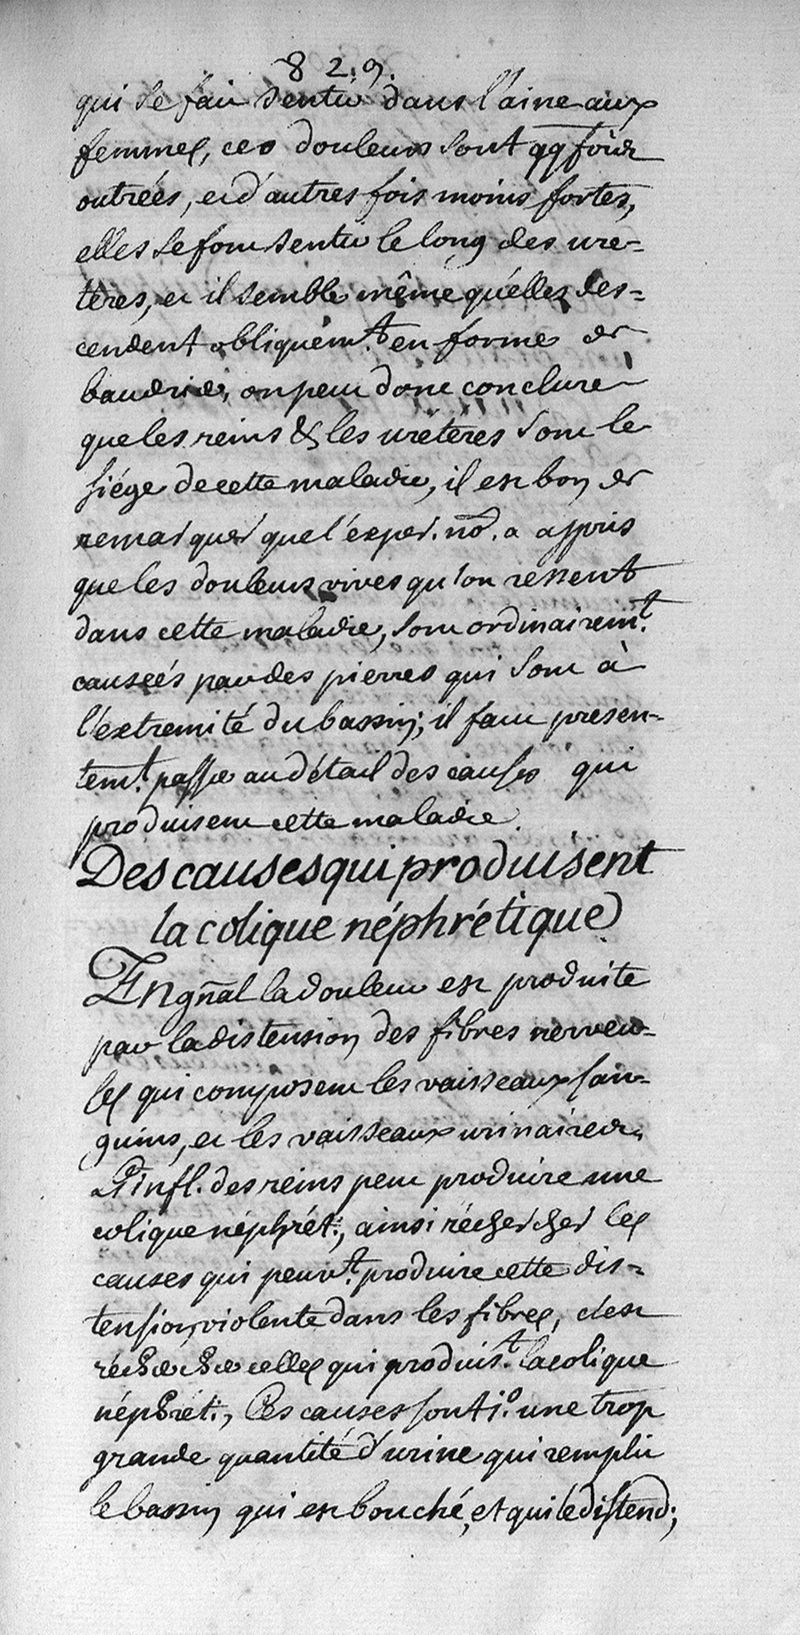 829.
qui se fait sentir dans l'aine aux
femmes, ces douleurs sont qqfois
outrées, et d'autres fois moins fortes,
elles se font sentir le long des ure=
tères, et il semble même qu'elles des=
cendent obliquém.t en forme de
baudrier, on peut donc conclure
que les reins & les urétères sont le
siége de cette maladie, il est bon de
remarquer que l'exper. nõ. a appris
que les douleurs vives qu'on ressent
dans cette maladie, sont ordinairem.t
causeés par des pierres qui sont à
l'extremité du bassin; il faut presen=
tem.t passer au détail des causes qui
produisent cette maladie.
Des causes qui produisent
la colique néphrétique
En gñal la douleur est produite
par la distension des fibres nerveu=
ses qui composent les vaisseaux san=
guins, et les vaisseaux urinaires.
L'infl. des reins peut produire une
colique néphrét., ainsi récher cher les
causes qui peuv.t produire cette dis=
tension violente dans les fibres, c'est
réchercher celles qui produis.t la colique
néphret., Ces causes sont 1.º une trop
grande quantité d'urine qui remplit
le bassin qui est bouché, et qui le distend;